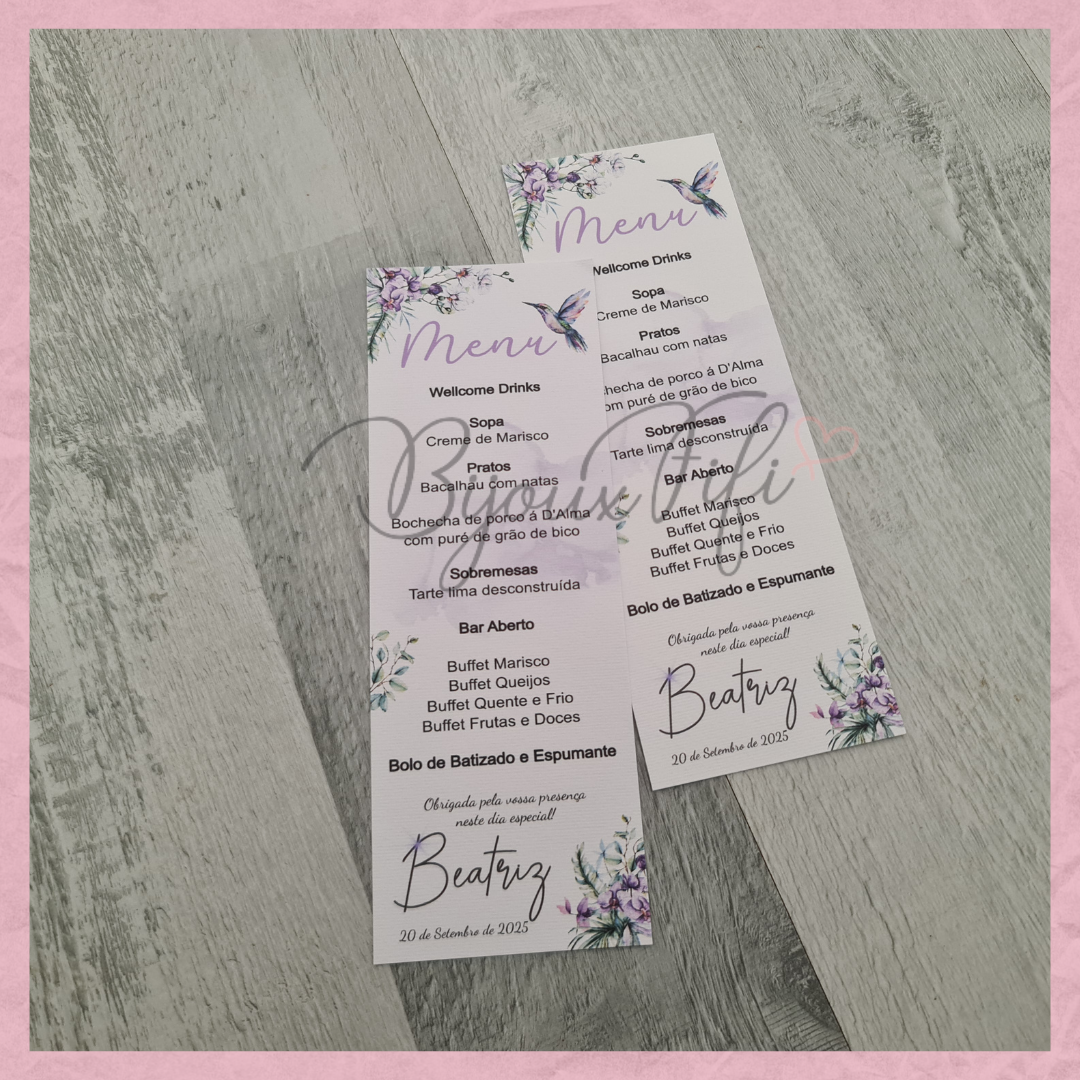 Menu
Wellcome Drinks
Sopa
Creme de Marisco
Pratos
Bacalhau com natas
Bochecha de porco á D'Alma
com puré de grão de bico
Sobremesas
Tarte lima desconstruída
Bar Aberto
Buffet Marisco
Buffet Queijos
Buffet Quente e Frio
Buffet Frutas e Doces
Bolo de Batizado e Espumante
Obrigada pela vossa presença
neste dia especial!
Beatriz
20 de Setembro de 2025
Menu
Wellcome Drinks
Sopa
Creme de Marisco
Pratos
Bacalhau com natas
checha de porco á D'Alma
om puré de grão de bico
Sobremesas
Tarte lima desconstruída
Bar Aberto
Buffet Marisco
Buffet Queijos
Buffet Quente e Frio
Buffet Frutas e Doces
Bolo de Batizado e Espumante
Obrigada pela vossa presença
neste dia especial!
Beatriz
20 de Setembro de 2025
Bijoux Fifi